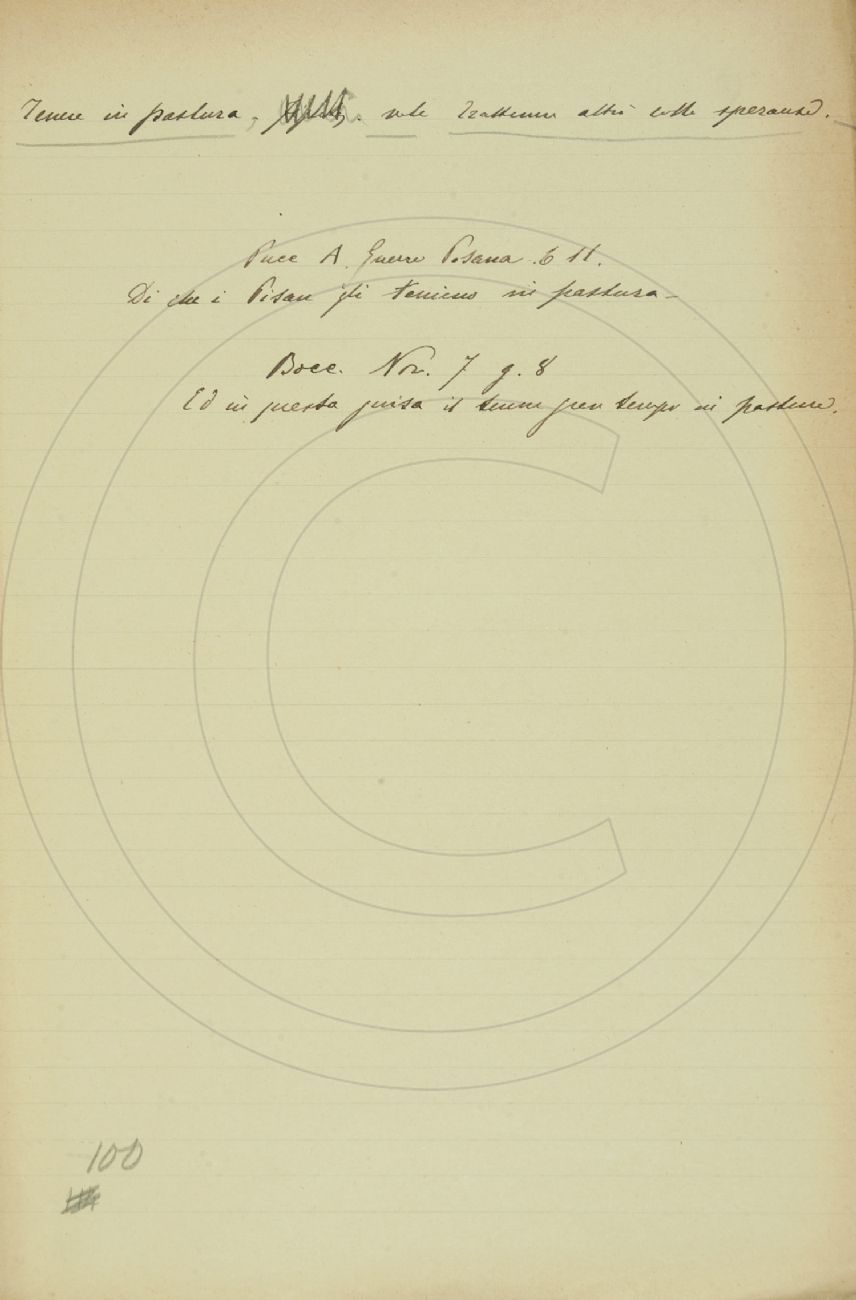 Tenere in pastura, vale Trattenere altrui colle speranze.
Pucc A. Guerra Pisana. 6 11.
Di che i Pisan gli tenieno in pastura –
Bocc. Nov. 7 g. 8
Ed in questa guisa il tenne gran tempo in pastura.
100